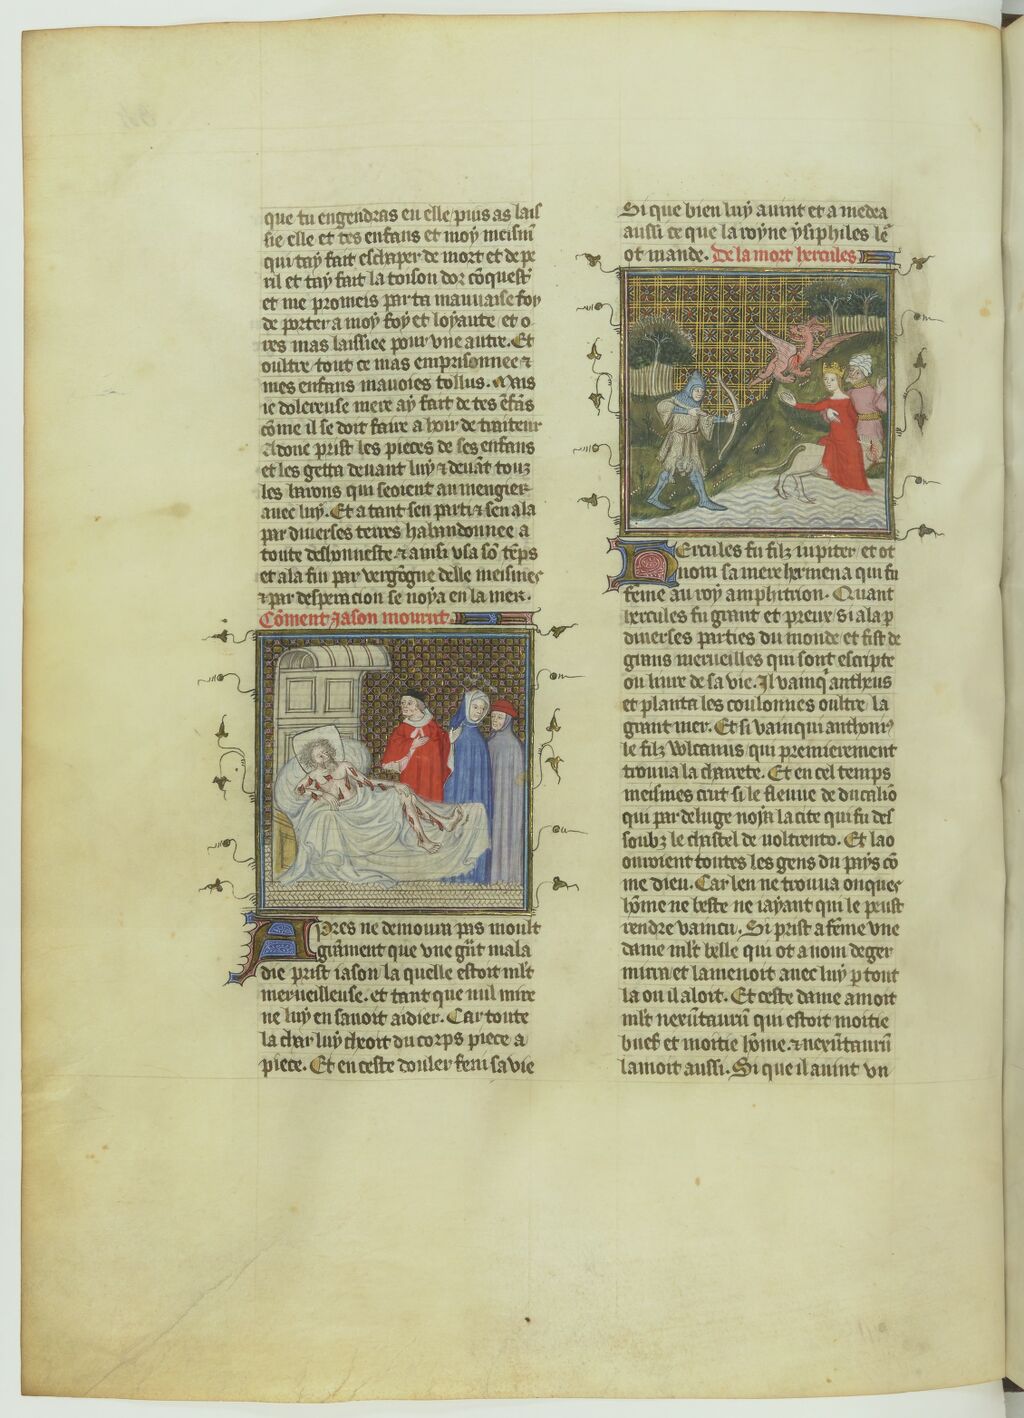 que tu engendras en elle puis as lais
sie elle et tes enfans et moy meism̄
qui tay fait eschaper de mort et de pe
ril et tay fait la toison dor cōquest̄
et me promeis par ta mauuaise foy
de porter a moy foy et loyaute et o
res mas laissiee pour vne autre. Et
oultre tout ce mas emprisonnee ⁊
mes enfans mauoies tollus. Mais
ie dolereuse mere ay fait de tes ēfās
cōme il se doit faire a hoir de traiteur
Adonc prist les pieces de ses enfans
et les getta deuant luy ⁊ deuāt touz
les barons qui seoient au mengier
auec luy. Et a tant sen parti ⁊ sen ala
par diuerses terres habandonnee a
toute deshonneste ⁊ ainsi vsa sō tēps
et a la fin par vergōgne delle meismes
⁊ par desperacion se noya en la mer.
Cōment Jason mourut
Apres ne demoura pas moult
grāment que vne gr̄t mala
die prist iason la quelle estoit ml̄t
merueilleuse. et tant que nul mire
ne luy en sauoit aidier. Car toute
la char luy cheoit du corps piece a
piece. Et en ceste douler feni sa vie
Si que bien luy auint et a medea
aussi ce que la royne ysiphiles le᷑
ot mande. De la mort hercules
Hercules fu filz iupiter et ot
nom sa mere hermena qui fu
feme au roy amphitrion. Quant
hercules fu grant et preur si ala p̲
diuerses parties du monde et fist de
grans merueilles qui sont escripte
ou liure de sa vie. Il vainq̄ antheus
et planta les coulonnes oultre la
grant mer. Et si vainqui
le filz vulcanus qui premierement
trouua la charrete. Et en cel temps
meismes crut si le fleuue de ducaliō
qui par deluge noja la cite qui fu des
soubz le chastel de Et lao
ouroient toutes les gens du pays cō
me dieu. Car len ne trouua onques
hōme ne beste ne iayant qui le peust
rendre vaincu. Si prist a fēme vne
dame ml̄t belle qui ot a nom deger
mira et la menoit auec luy p̲ tout
la ou il aloit. Et ceste dame amoit
ml̄t nexūtaurū qui estoit moitie
buef et moitie hōme. ⁊ nexūtaurū
lamoit aussi. Si que il auint vn